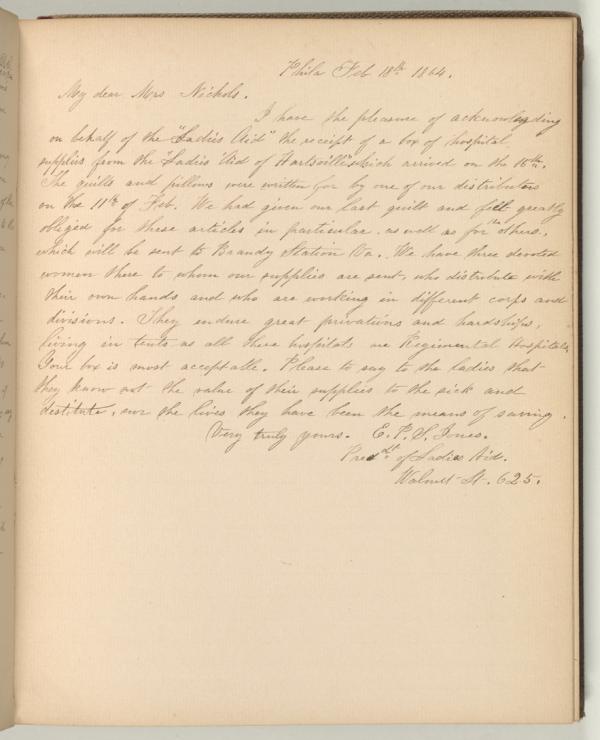 Phila Feb 18th 1864.
My dear Mrs Nichols.
I have the pleasure of acknowledging
on behalf of the "Ladies Aid" the receipt of a box of hospital
supplies from the "Ladies Aid of Hartsville" which arrived on the 16th.
The quilts and pillows were written for by one of our distributors
on the 11th of Feb. We had given our last quilt and felt greatly
obliged for these articles in particular as well as for the others,
which will be sent to Brandy Station Va.. We have three devoted
women there to whom our supplies are sent, who distribute with
their own hands and who are working in different corps and
divisions. They endure great privations and hardships,
living in tents as all these hospitals are Regimental Hospitals.
Your box is most acceptable. Please to say to the ladies that
they know not the value of their supplies to the sick and
destitute, nor the lives they have been the means of saving.
Very truly yours. E. P. S. Jones.
Presdt. of Ladies Aid.
Walnut St. 625.